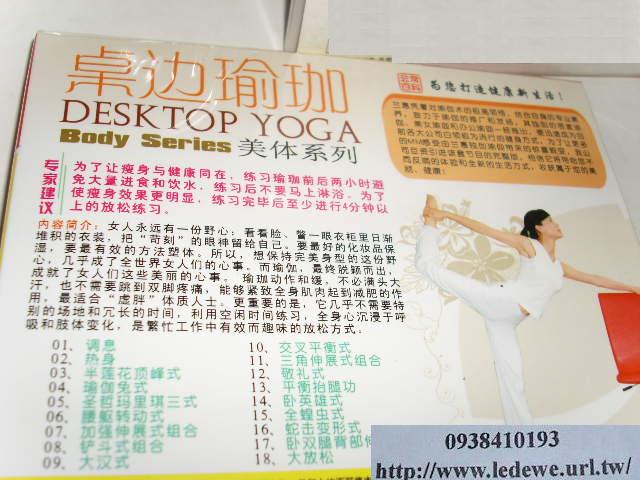 桌边瑜珈
DESKTOP YOGA
Body Series 美体系列
为您打造健康新生活！
专家建议
为了让瘦身与健康同在，练习瑜珈前后两小时避
免大量进食和饮水，练习后不要马上淋浴。为了
使瘦身效果更明显，练习完毕后至少进行4分钟以
上的放松练习。
内容简介：女人永远有一份野心：看着脸、瞥一眼衣柜里日渐
堆积的衣装，把“苛刻”的眼神留给自己。要最好的化妆品保
湿，要最有效的方法塑体。所以，想保持完美身型的这份野
心，几乎成了全世界女人们的心事。而瑜珈，最终脱颖而出，
成就了女人们这些美丽的心事。 瑜珈动作和缓，不必满头大
汗，也不需要跳到双脚疼痛，能够紧致全身肌肉起到减肥的作
用，最适合“虚胖”体质人士。更重要的是，它几乎不需要特
别的场地和冗长的时间，利用空闲时间练习，全身心沉浸于呼
吸和肢体变化，是繁忙工作中有效而趣味的放松方式。
01、 调息
02、 热身
03、 半莲花顶峰式
04、 瑜伽兔式
05、 圣哲玛里琪三式
06、 腰躯转动式
07、 加强伸展式组合
08、 铲斗式组合
09、 大汉式
10、 交叉平衡式
11、 三角伸展式组合
12、 敬礼式
13、 平衡抬腿功
14、 卧英雄式
15、 全蝗虫式
16、 蛇击变形式
17、 卧双腿背部伸
18、 大放松
0938410193
http://www.ledewe.url.tw/